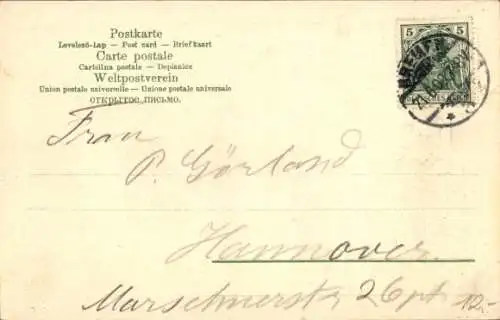 Postkarte
Levelező-Lap — Post card — Briefkaart
Carte postale
Cartolina postale — Dopisnice
Weltpostverein
Union postale universelle — Unione postale universale
ОТКРЫТОЕ ПИСЬМО.
5 5
BREMEN
DEUTSCHES REICH
Frau
P. Görland
Hannover.
Marschnerstr 26 pt
12.-